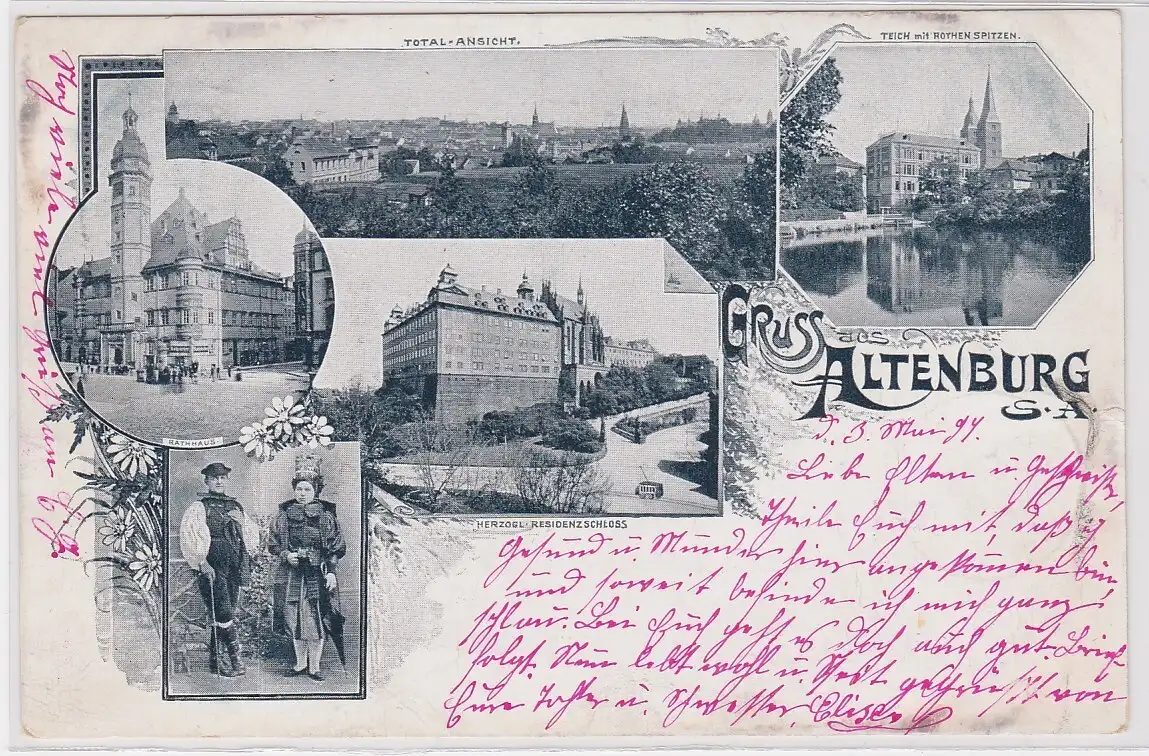 TOTAL-ANSICHT.
TEICH mit ROTHEN SPITZEN.
RATHHAUS.
HERZOGL. RESIDENZSCHLOSS
GRUSS aus
ALTENBURG
S.-A.
d. 3. Mai 97.
Liebe Eltern u. Geschwister,
Theile Euch mit, daß ich
Gesund u. Munder hier angekommen bin
und soweit befinde ich mich ganz
schlau. Bei Euch geht es doch auch gut. Brief
folgt. Nun lebt wohl u. Seit gegrüsst von
Eure Tochter u. Schwester Elise.
Noch viele mal grüßen